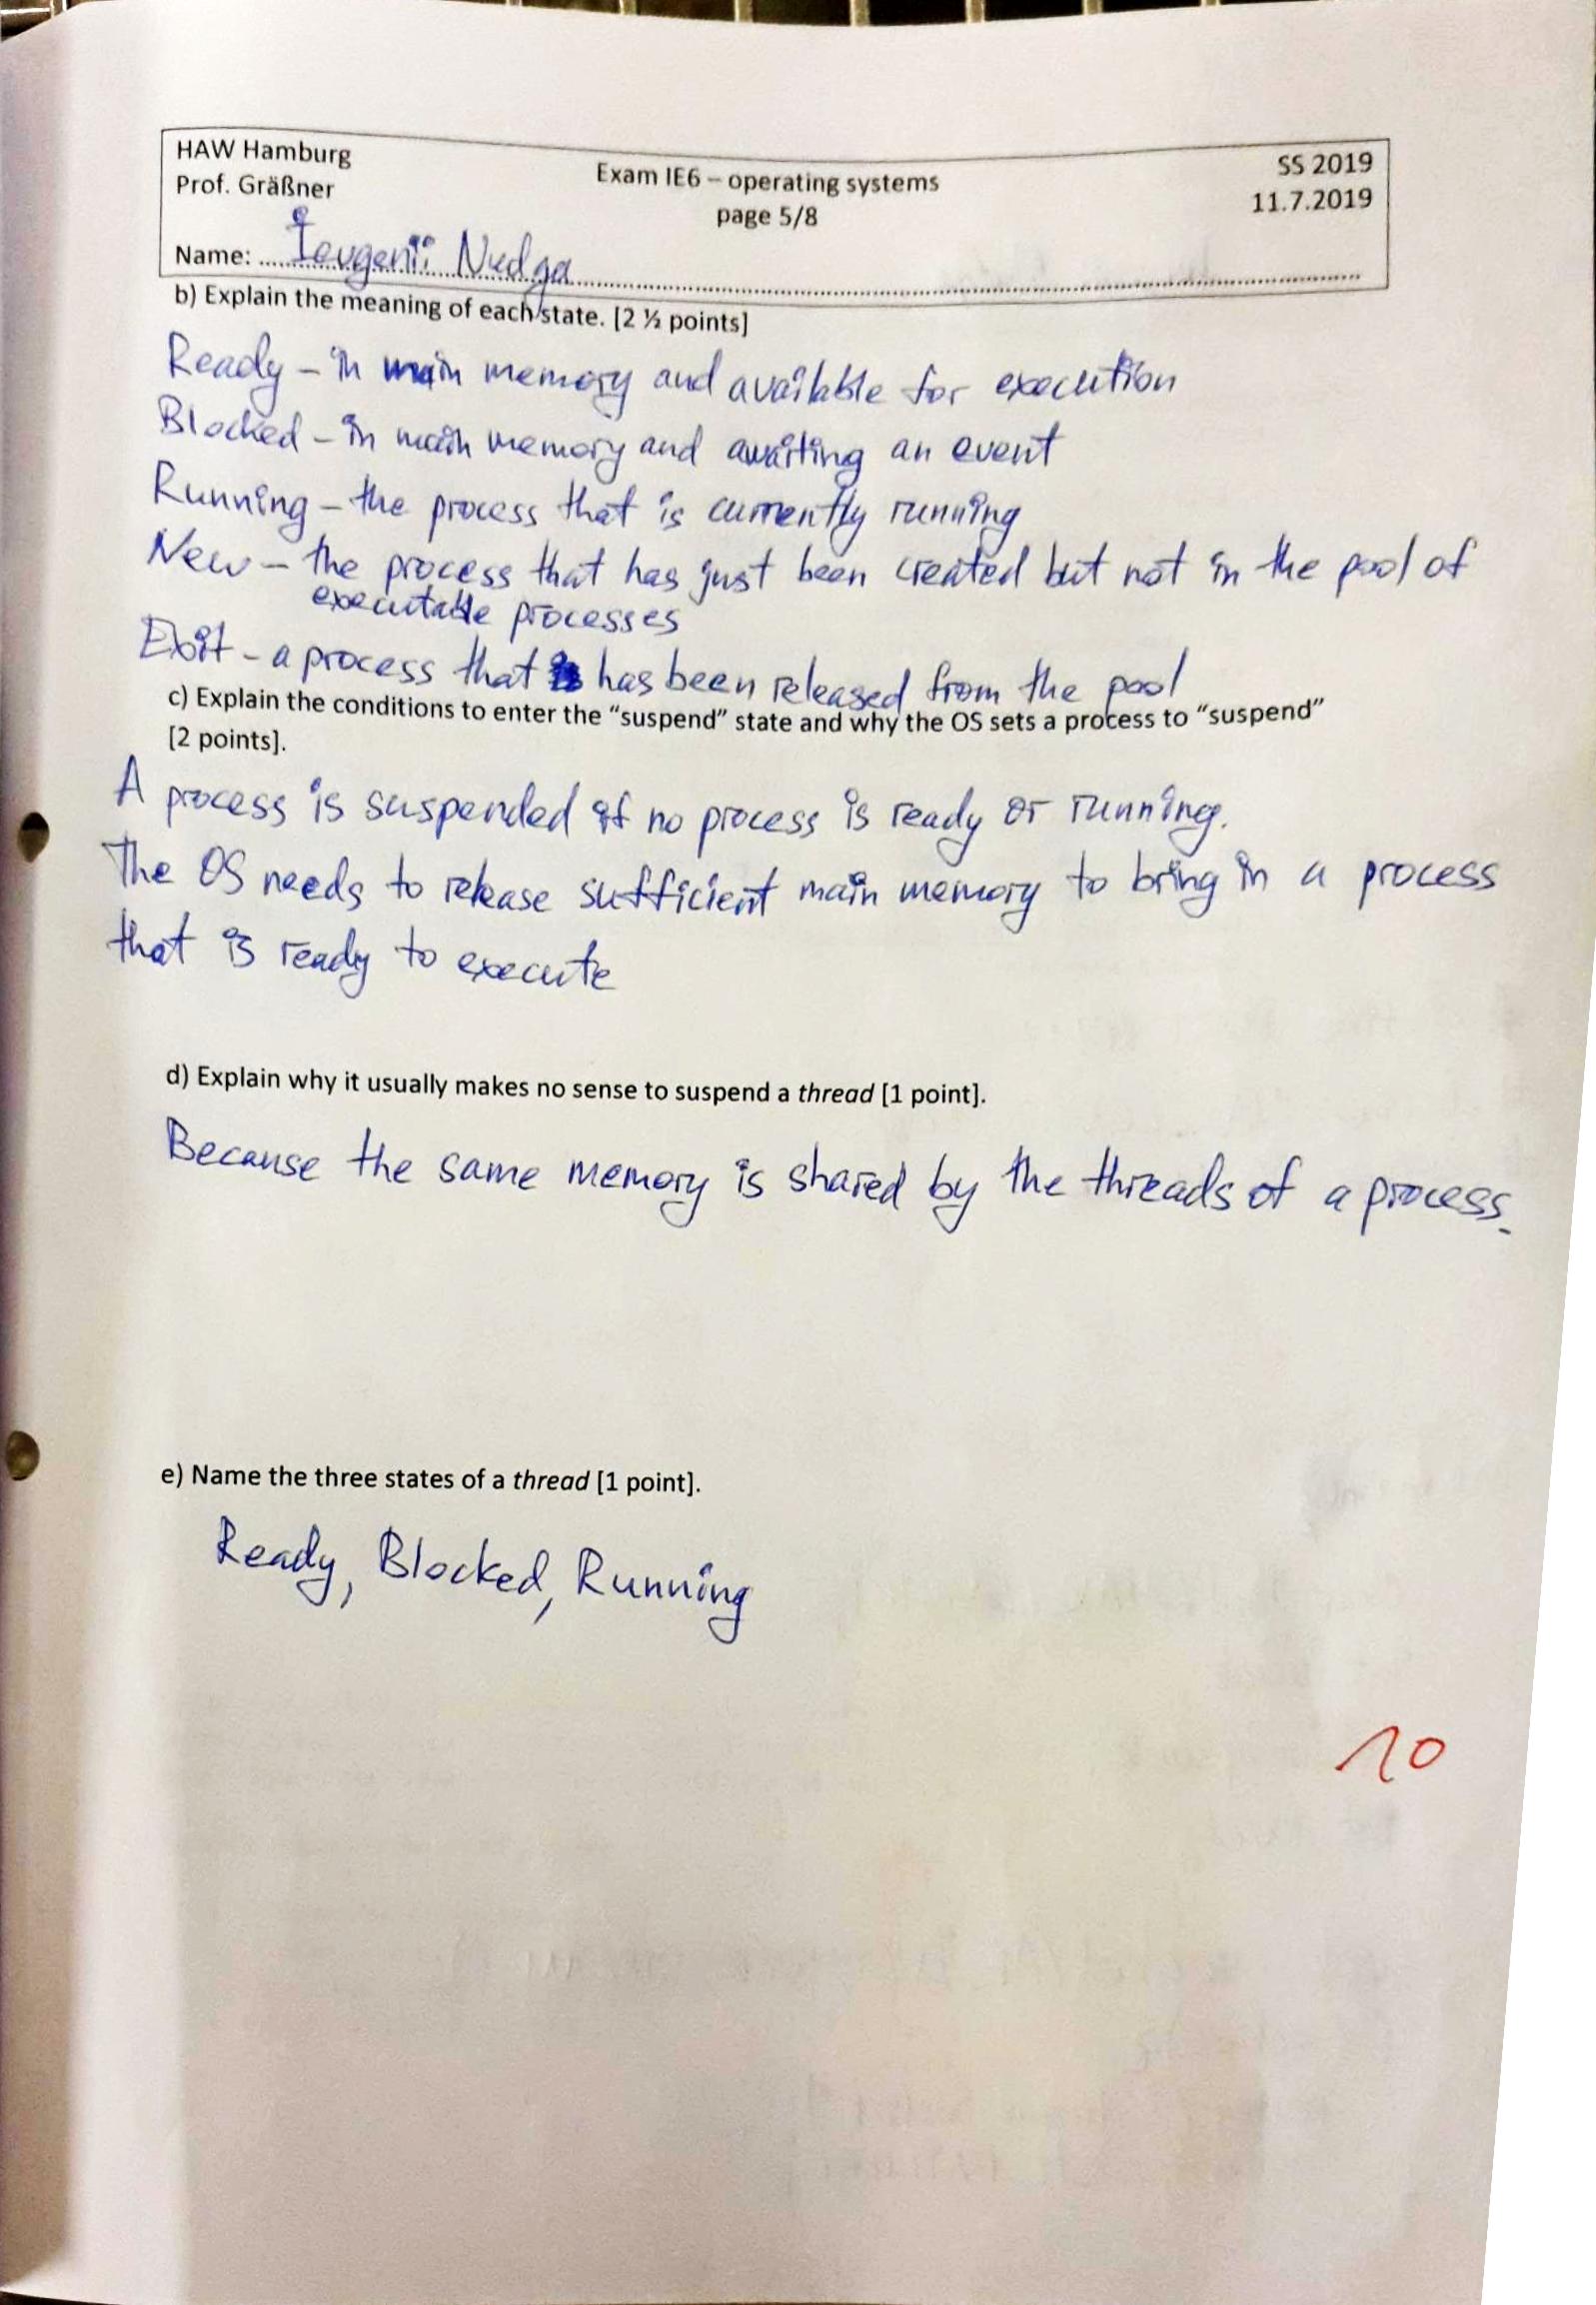 HAW Hamburg
Prof. Gräßner
Exam IE6 – operating systems
page 5/8
SS 2019
11.7.2019
Name: Ievgenii Nudga
b) Explain the meaning of each state. [2 ½ points]
Ready – in main memory and available for execution
Blocked – in main memory and awaiting an event
Running – the process that is currently running
New – the process that has just been created but not in the pool of
executable processes
Exit - a process that has been released from the pool
c) Explain the conditions to enter the “suspend” state and why the OS sets a process to “suspend”
[2 points].
A process is suspended if no process is ready or running.
The OS needs to release sufficient main memory to bring in a process
that is ready to execute
d) Explain why it usually makes no sense to suspend a thread [1 point].
Because the same memory is shared by the threads of a process.
e) Name the three states of a thread [1 point].
Ready, Blocked, Running
10